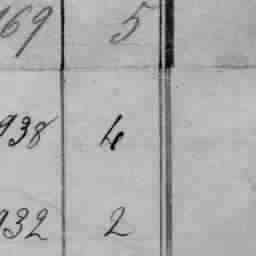 169 5
938 4
932 2